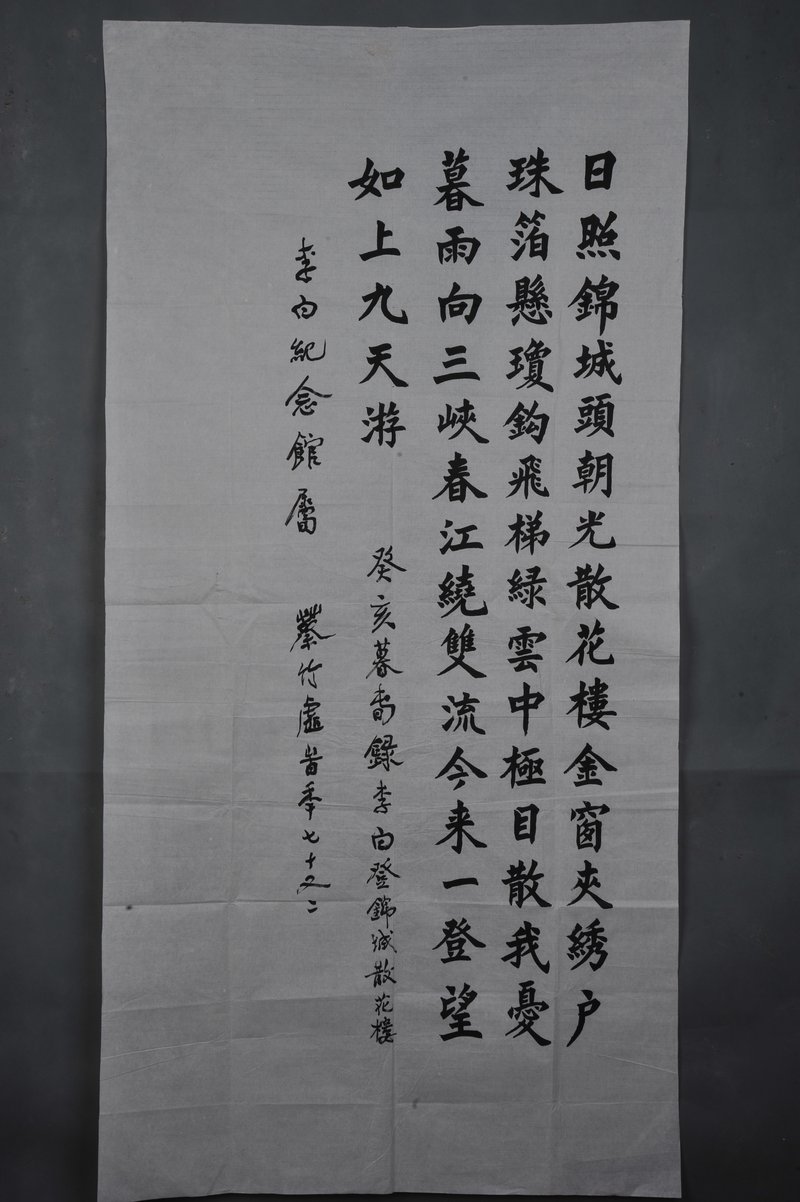 日照錦城頭朝光散花樓金窗夾綉户
珠箔懸瓊鈎飛梯緑雲中極目散我憂
暮雨向三峽春江繞雙流今来一登望
如上九天游
癸亥暮春録李白登錦城散花樓
李白紀念館屬
蔡竹虚時年七十又二